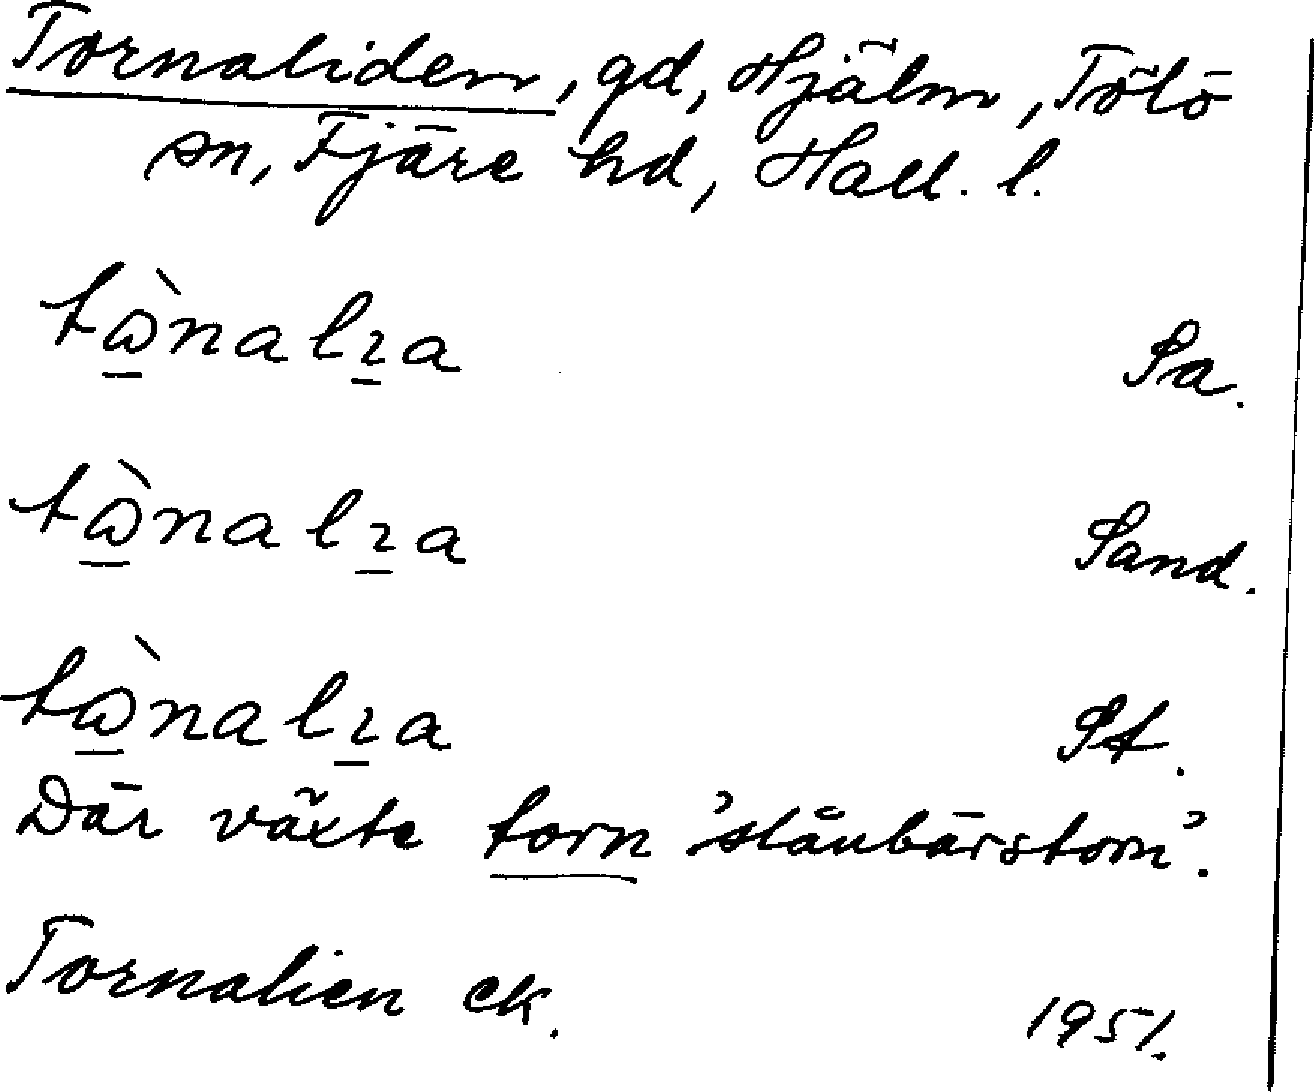 Tornaliden, gd, Hjälm, Tölö
sn, Fjäre hd, Hall. l.
tὼ̲nalɪ̲a Sa.
tὼ̲nalɪ̲a Sand.
tὼ̲nalɪ̲a St.
Där växte torn 'slånbärstorn'.
Tornalien ek. 1951.